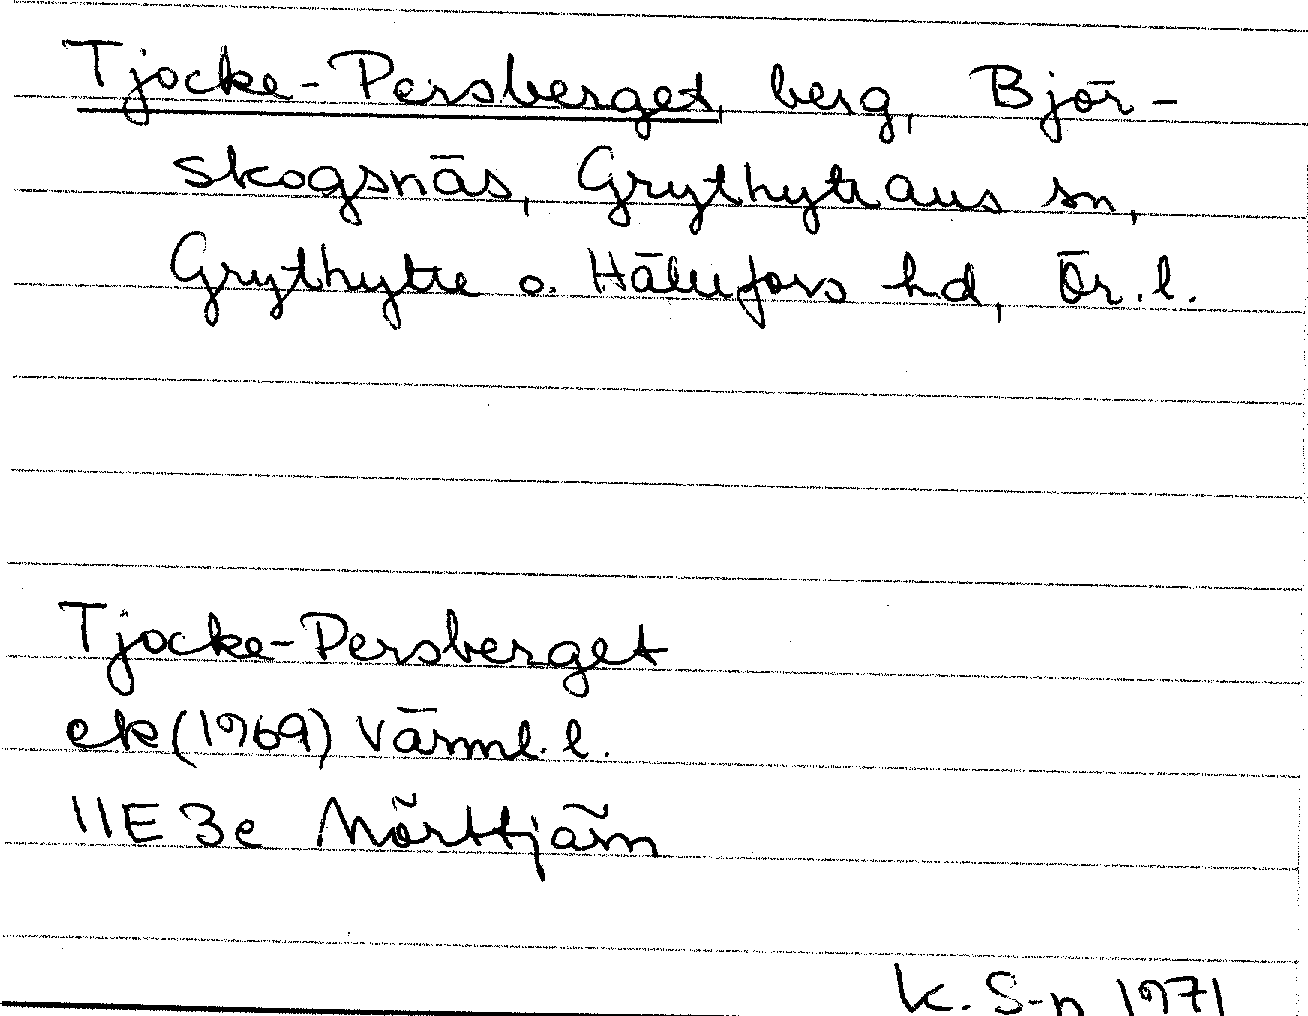 Tjocke-Persberget, berg, Björ-
skogsnäs, Grythyttans sn,
Grythytte o. Hällefors hd, Ör. l.
Tjocke-Persberget
ek (1969) Värml. l.
11E 3e Mörttjärn
K. S-n 1971